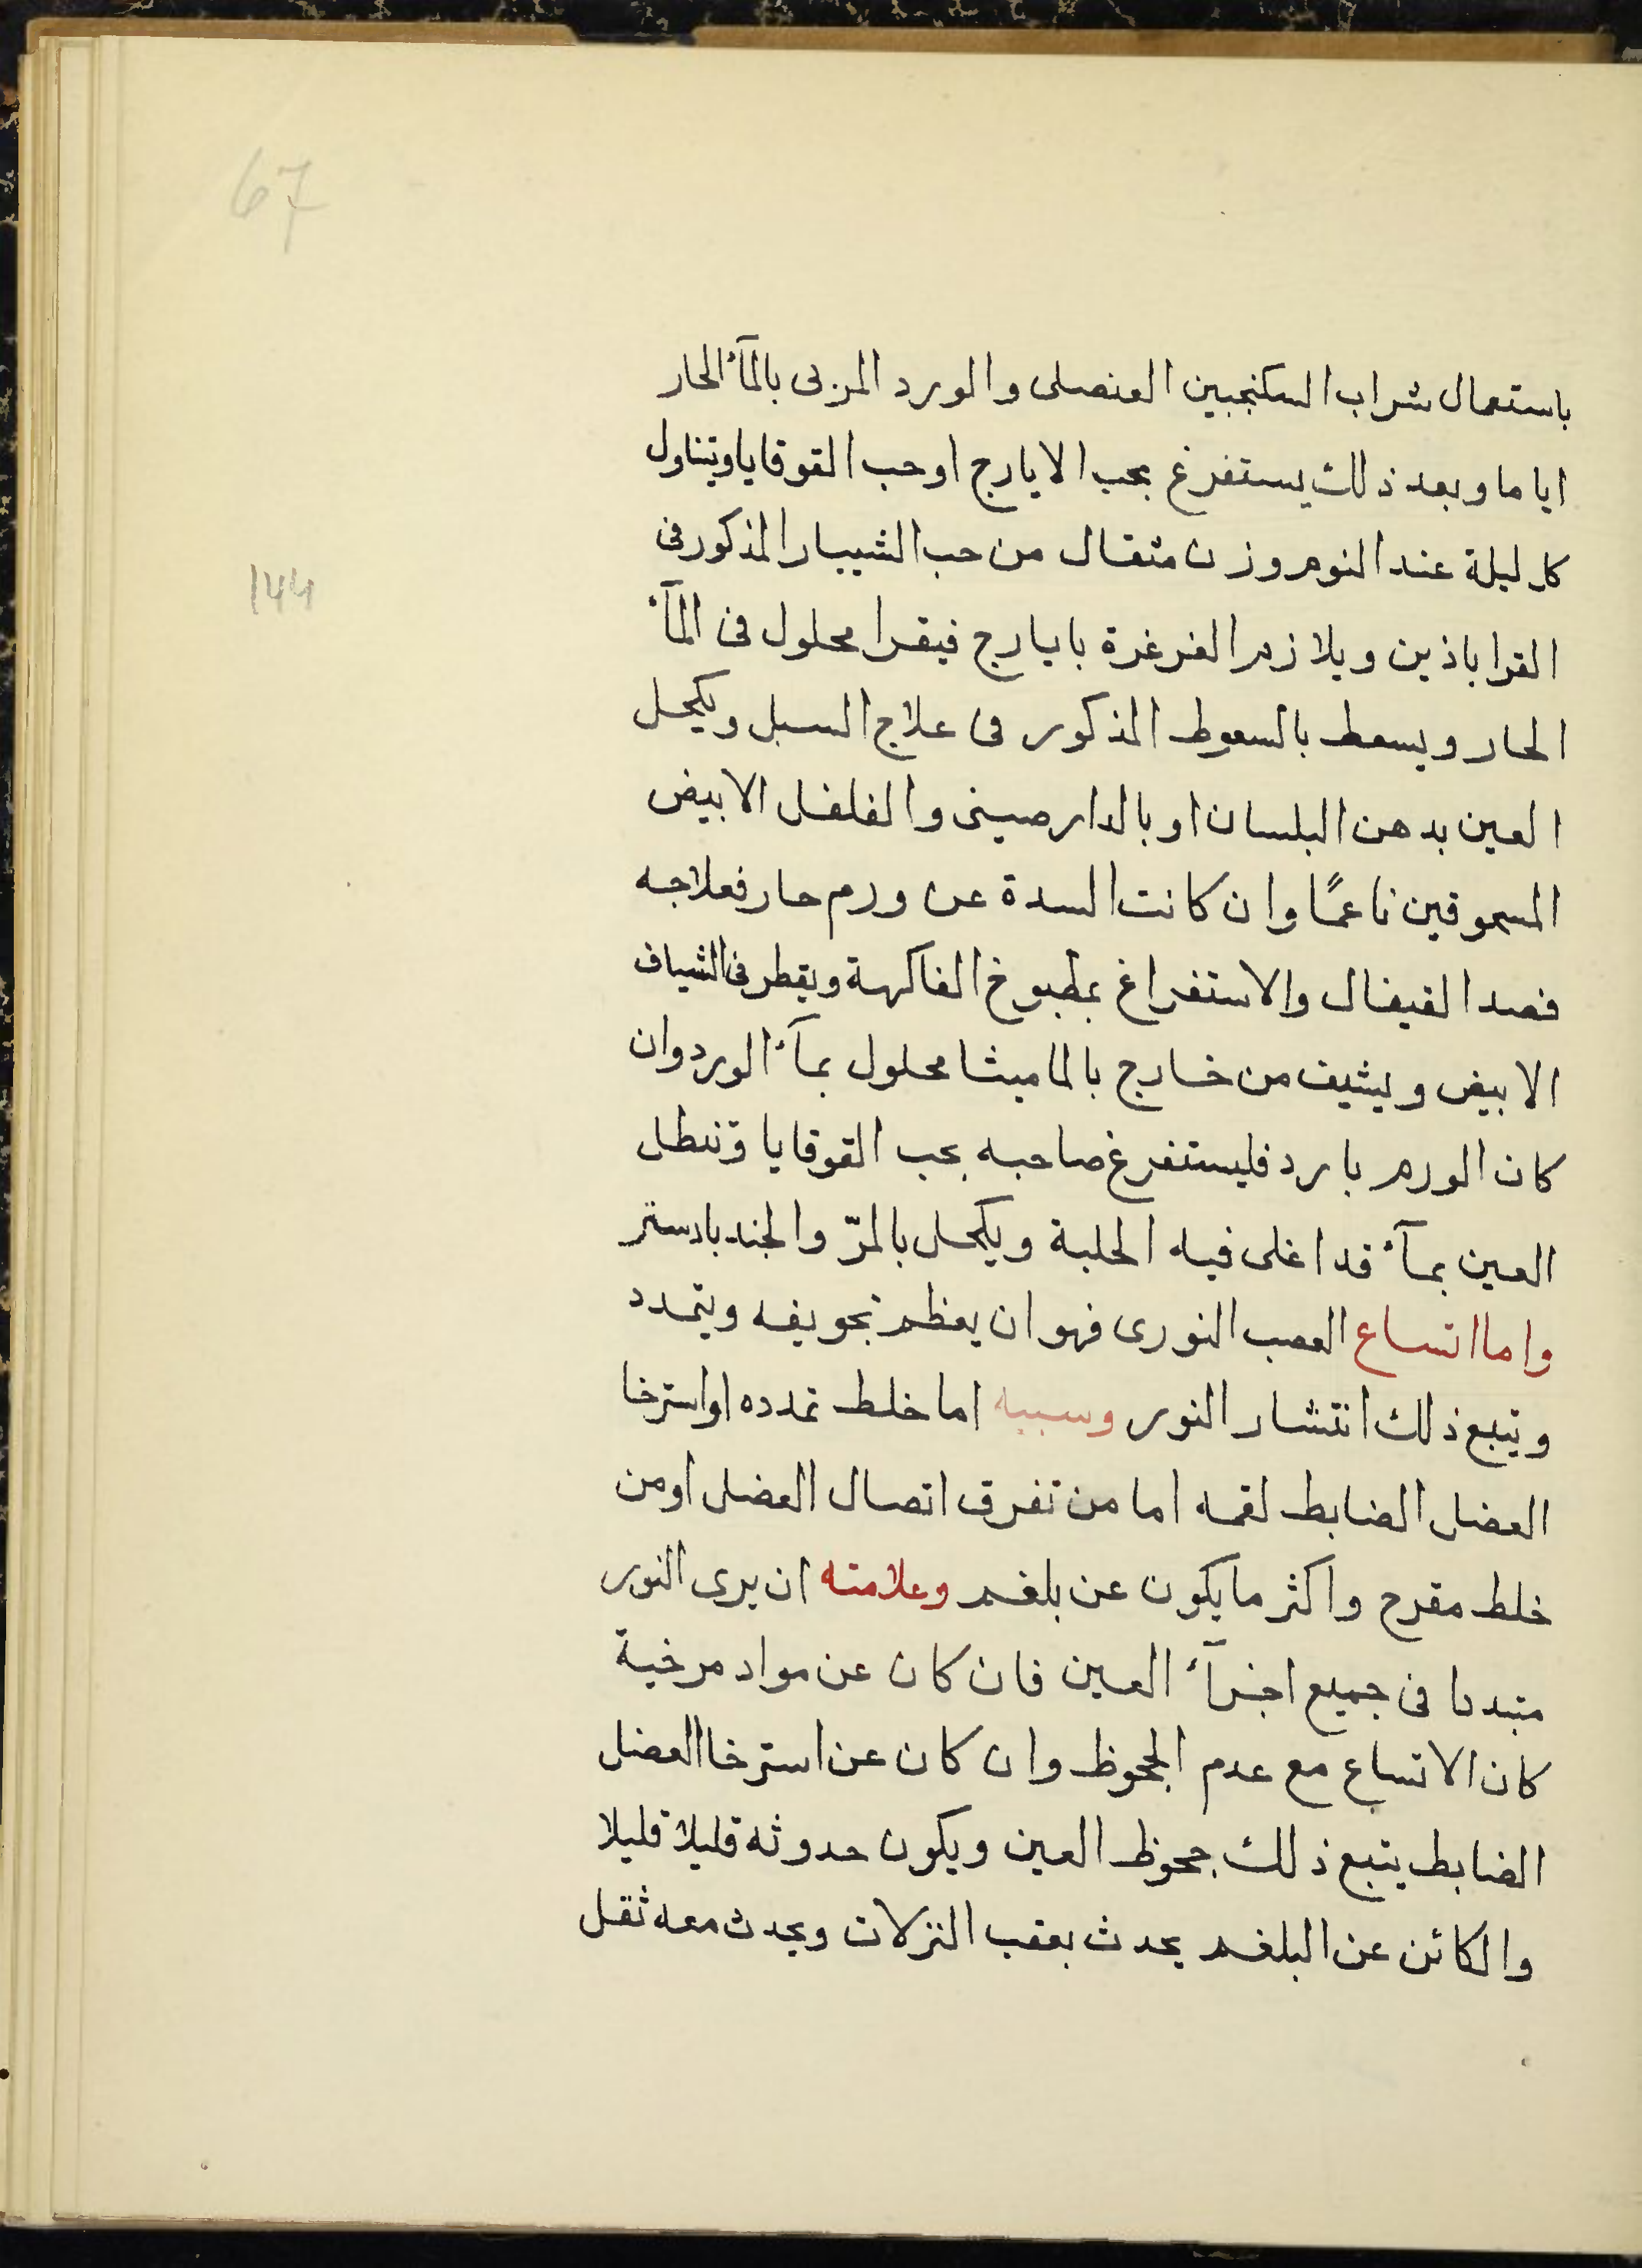 67
144
باستعمال شراب السكنجبين العنصلى والورد المربى بالمآء الحار
اياما وبعد ذلك يستفرغ بحب الايارج او حب القوقايا ويتناول
كل ليلة عند النوم وزن مثقال من حب الشبيار المذكور فى
القراباذين ويلازم الغرغرة بايارج فيقرا محلول فى المآء
الحار ويسعط بالسعوط المذكور فى علاج السبل ويكحل
العين بدهن البلسان او بالدارصينى والفلفل الابيض
المسحوقين ناعمًا وان كانت السدة عن ورم حار فعلاجه
فصد القيفال والاستفراغ بمطبوخ الفاكهة ويقطر فى الشياف
الابيض ويشيف من خارج بالماميثا محلول بمآء الورد وان
كان الورم بارد فليستفرغ صاحبه بحب القوقايا وتنطل
العين بمآء قد اغلى فيه الحلبة ويكحل بالمرّ والجندبادستر
واما اتساع العصب النورى فهو ان يعظم تجويفه ويتمدد
ويتبع ذلك انتشار النور وسببه اما خلط تمدده او استرخا
العضل الضابط لفمه اما من تفرق اتصال العضل او من
خلط مقرح واكثر ما يكون عن بلغم وعلامته ان يرى النور
متبددا فى جميع اجزآء العين فان كان عن مواد مرخية
كان الاتساع مع عدم الجحوظ وان كان عن استرخا العضل
الضابط يتبع ذلك جحوظ العين ويكون حدوثه قليلا قليلا
والكائن عن البلغم يحدث بعقب النزلات ويحدث معه ثقل